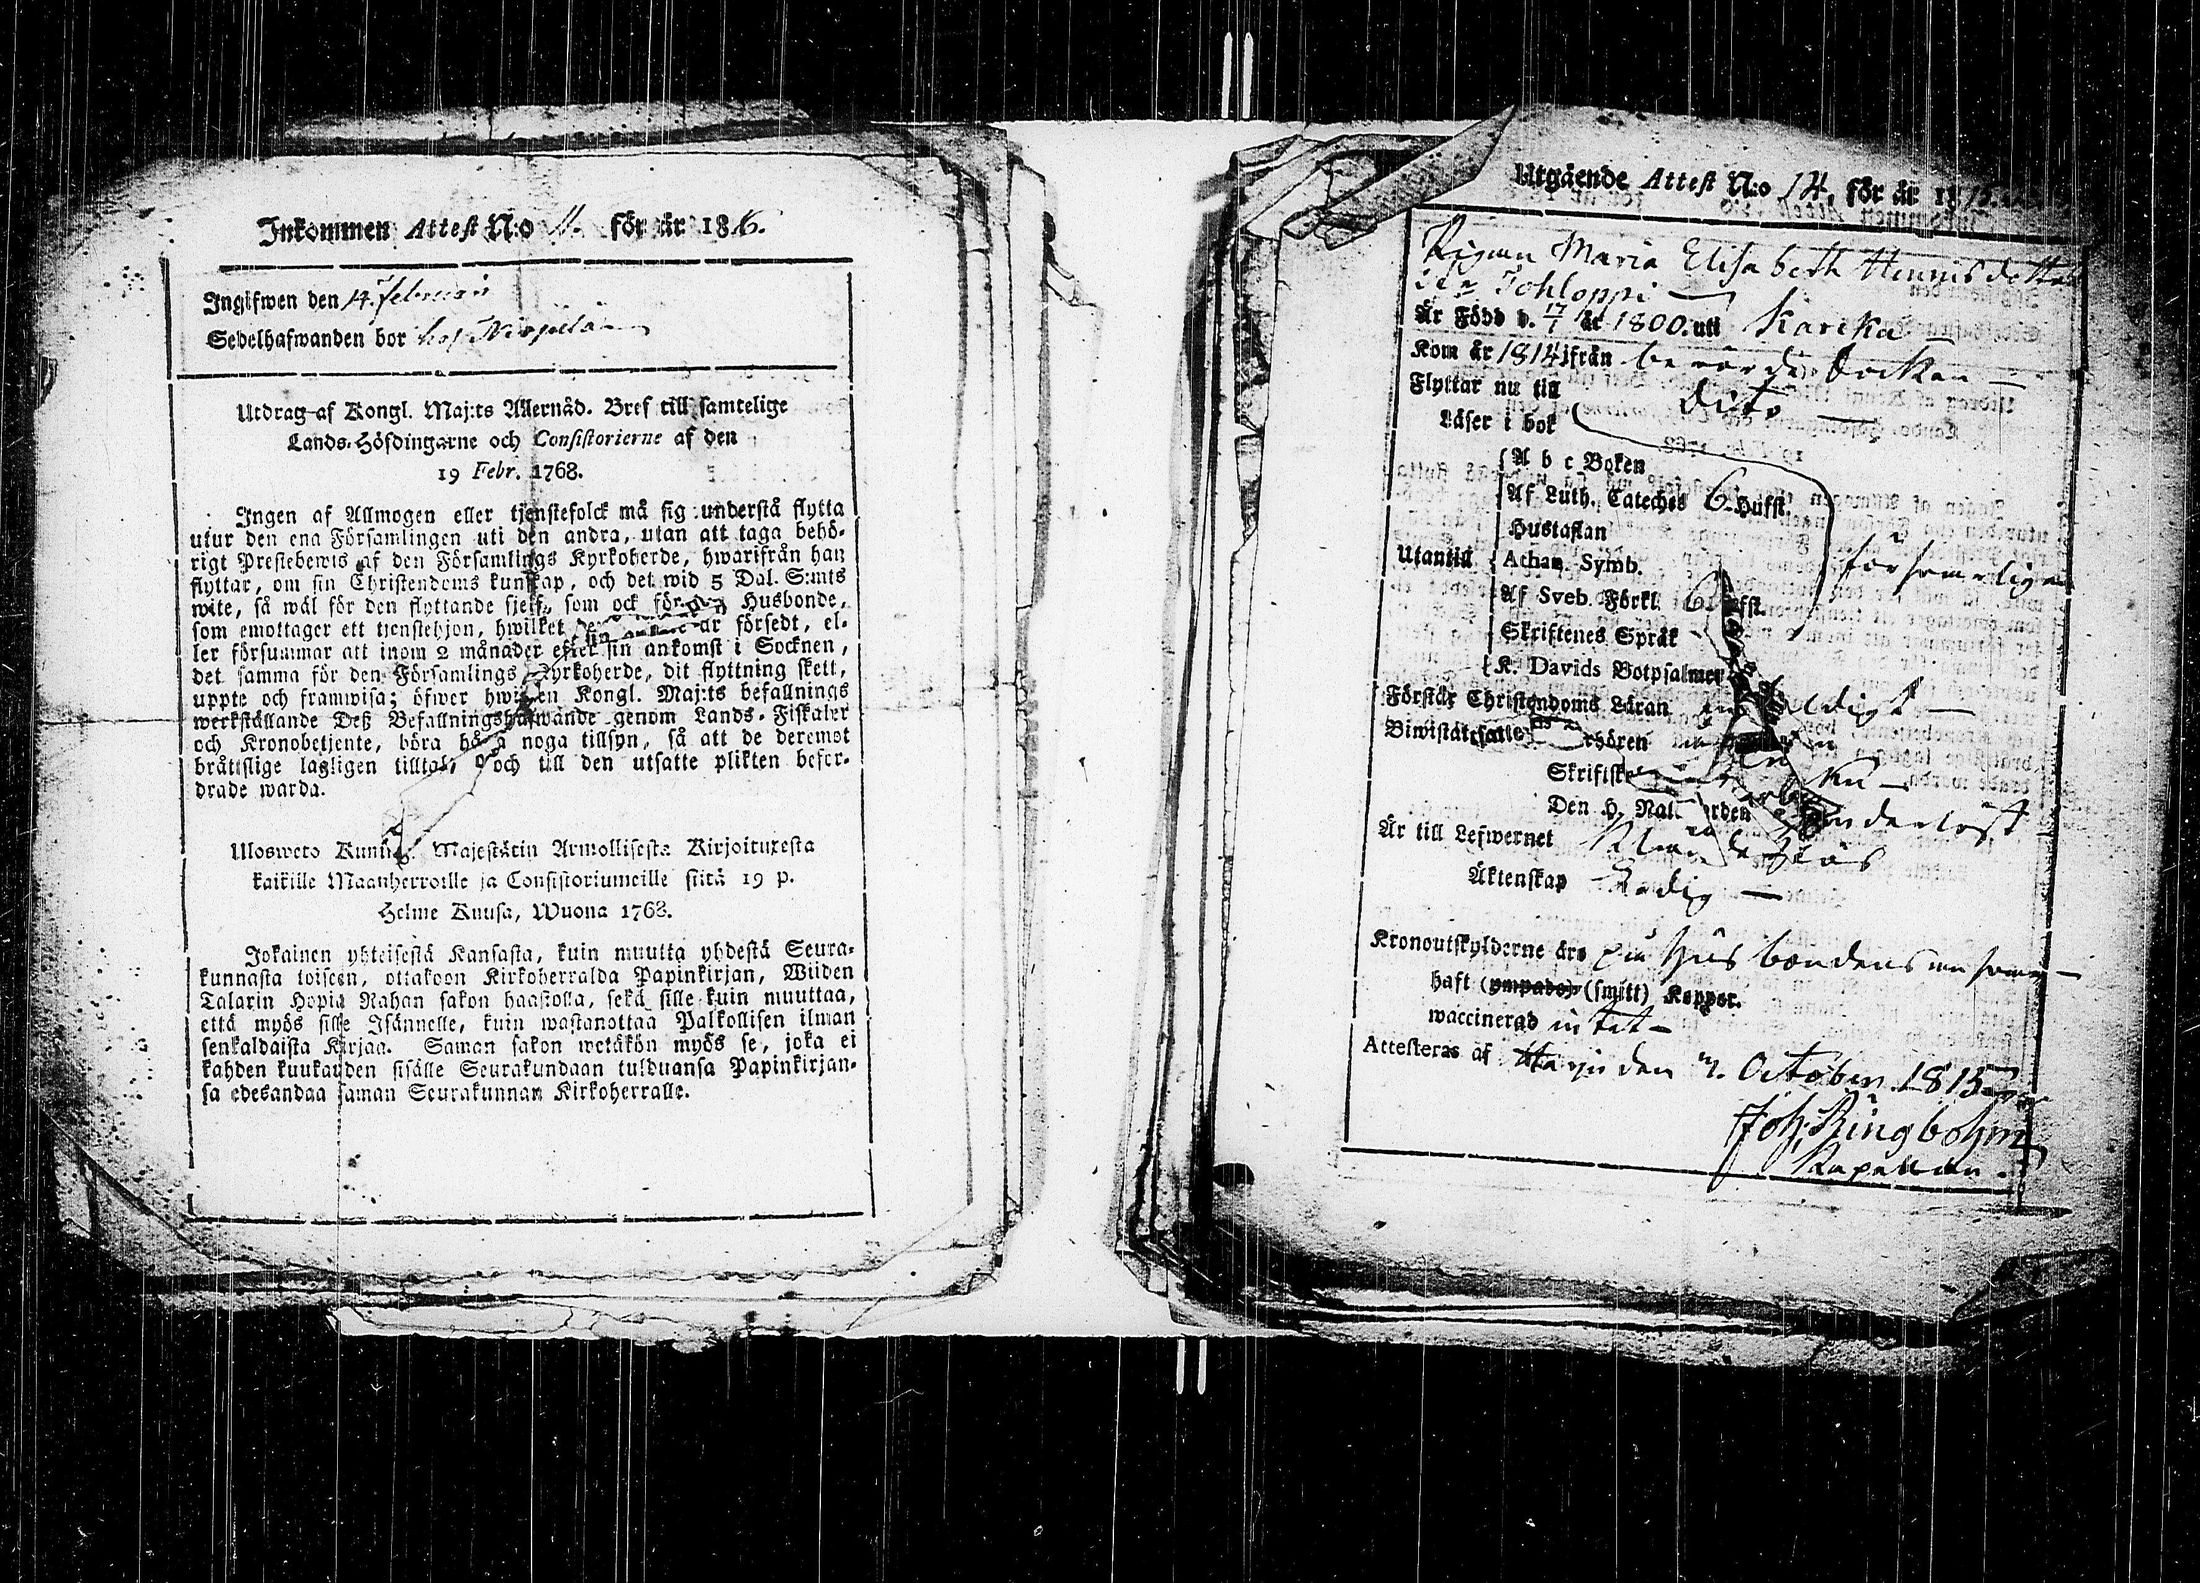 Inkommen Attest N:o 11. för år 1816.
Ingifwen den 14. februari
Sedelhafwanden bor hos
Utdrag af Kongl. Maj:ts Allernåd. Bref till samtelige
Lands-Höfdingarne och Consistorierne af den
19 Febr. 1768.
Ingen af Allmogen eller tjenstefolck må sig understå flytta
utur den ena Församlingen uti den andra, utan att taga behö-
rigt Prestebewis af den Församlings Kyrkoherde, hwarifrån han
flyttar, om sin Christendoms kunskap, och det wid 5 Dal. S:mts
wite, så wäl för den flyttande sjelf, som ock för den Husbonde,
som emottager ett tjenstehjon, hwilket är försedt, el-
ler försummar att inom 2 månader efter sin ankomst i Socknen,
det samma för den Församlings Kyrkoherde, dit flyttning skett,
uppte och framwisa; öfwer hwilken Kongl. Maj:ts befallnings
werkställande Deß Befallningshafwande genom Lands-Fiskaler
och Kronobetjente, böra hafwa noga tillsyn, så att de deremot
bråtislige lagligen tilltalas och till den utsatte plikten befor-
drade warda.
Ulosweto Kuning. Majestätin Armollisesta Kirjoituxesta
kaikille Maanherroille ja Consistoriumeille siitä 19 p.
Helme Kuusa, Wuona 1768.
Jokainen yhteisestä Kansasta, kuin muutta yhdestä Seura-
kunnasta toiseen, ottakoon Kirkoherralda Papinkirjan, Wiiden
Talarin Hopia Rahan sakon haastolla, sekä sille kuin muuttaa,
että myös sille Isännelle, kuin wastanottaa Palkollisen ilman
senkaldaista Kirjaa. Saman sakon wetäkön myös se, joka ei
kahden kuukauden sisälle Seurakundaan tulduansa Papinkirjan-
sa edesandaa saman Seurakunnan Kirkoherralle.
Utgående Attest N:o 14. för år 1815.
Pigan Maria Elisabeth Henricsdotter
Tohloppi
Är Född d. 17/1 år 1800. uti Karika
Kom år 1814 ifrån berörde Socken
Flyttar nu till Dito
Läser i bok
A b c Boken
Af Luth. Cateches 6. Hufst.
Hustaflan
Utantill Athan. Symb. försvarligen
Af Sveb. Förkl. 6 Hufst.
Skriftenes Språk
K. Davids Botpsalmer
Förstår Christendoms Läran
Biwistat
Skriftsk
Den H. Nattvarden
Är till Lefwernet
Äktenskap Ledig
Kronoutskylderne äro på Husbondens
haft (ympade) (smitt) Koppor.
waccinerad intet
Attesteras af den 7. October 1815
Joh. Ringbohm
Kapellan.